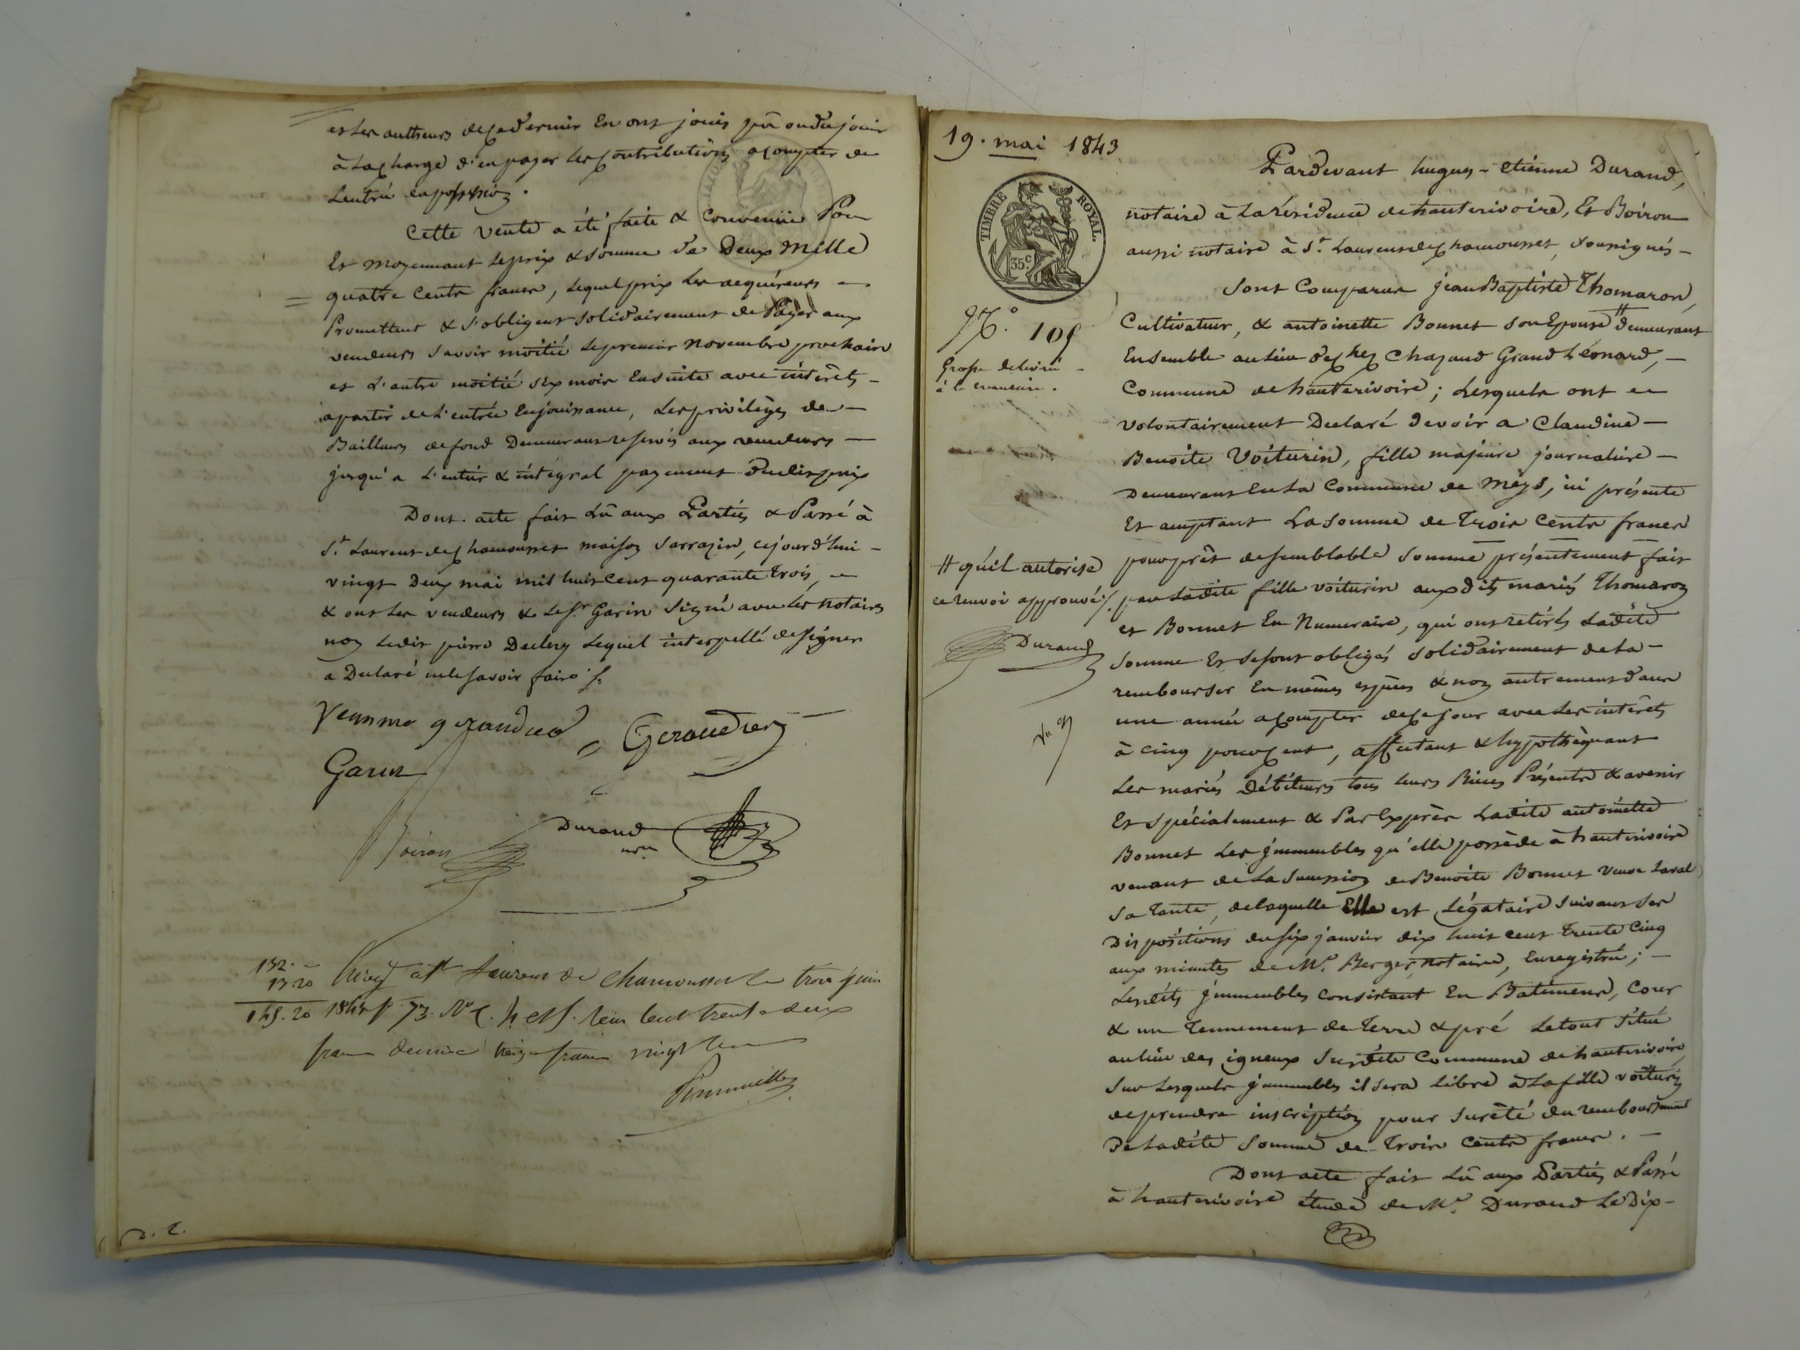 et les autheurs de ce dernier en ont joui pû ou du jouir
à la charge d'en payer les contributions a compter de
L'entrée en possession.
Cette vente a été faite & convenüe Pour
Et moyennant le prix & somme de Deux Mille
quatre cents francs, lequel prix les acquéreurs –
Promettent & s'obligent solidairement de Payer aux
vendeurs savoir moitié le premier Novembre prochain
et l'autre moitié six mois ensuite avec intérêts –
a partir de l'entrée en jouissance, Les privilèges de –
Bailleurs de fond Demeurant reservés aux vendeurs –
jusqu'a l'entier & intégral payement dudit prix
Dont acte fait Lû aux Parties & Passé à
St Laurent de chamousset maison Sarrazin, cejourd'hui –
vingt Deux mai mil huit cent quarante trois, –
& ont les vendeurs & le Sr Garin signé avec les notaires
non ledit pierre Decley lequel interpellé de signer
a Declaré ne le savoir faire ./.
Garin
Boiron
Durand
nre
132. –
13 20
145. 20
Enreg à St Laurent de chamousset le trois juin
1843 f° 73. V° C. 4 et 5. Reçu cent trente deux
francs decime treize francs vingt cen
19. mai 1843
TIMBRE ROYAL.
35 c
N.° 105
Grosse delivrée
à la créancière.
# qu'il autorise
ce renvoi approuvé ./.
Durand
Pardevant hugues-etienne Durand,
notaire à la résidence de hauterivoire, Et Boiron
aussi notaire à St. Laurent de chamousset, soussignés –
Sont Comparus jean Baptiste Thomaron,
Cultivateur, & antoinette Bonnet son Epouse # demeurant
Ensemble au lieu de chez Chazaud Grand Léonard, –
Commune de hauterivoire; Lesquels ont –
volontairement Declaré devoir a Claudine –
Benoite Voiturin, fille majeure journalière –
Demeurant en la Commune de Meys, ici présente
Et acceptant La somme de Trois cents francs
pour prêt de semblable somme présentement fait
par ladite fille voiturin aux dits mariés Thomaron
et Bonnet En Numeraire, qui ont retirés Ladite
somme Et se sont obligés solidairement de la –
rembourser En mêmes espèces & non autrement dans
une année a compter de ce jour avec les intérêts
à cinq pour cent, affectant & hypothèquant
Les mariés Débiteurs tous leurs Biens Présents & avenir
Et spécialement & Par Exprès Ladite antoinette
Bonnet Les jmmeubles qu'elle possède à hauterivoire
venant de La succession de Benoite Bonnet veuve Laval
sa Tante, de laquelle Elle est Légataire suivant ses
Dispositions du six janvier dix huit cent Trente Cinq
aux minutes de Me. Berger, Notaire, Enregistré; –
Lesdits jmmeubles Consistant En Batiment, Cour
& un Tennement de Terre & pré Le tout situé
au lieu des igneux susdite Commune de hauterivoire,
Sur Lesquels jmmeubles il sera Libre à La fille voiturin
de prendre inscription pour sureté du remboursement
De Ladite somme de Trois cents francs. –
Dont acte fait Lû aux Parties & Passé
à hauterivoire étude de Me. Durand Le Dix-